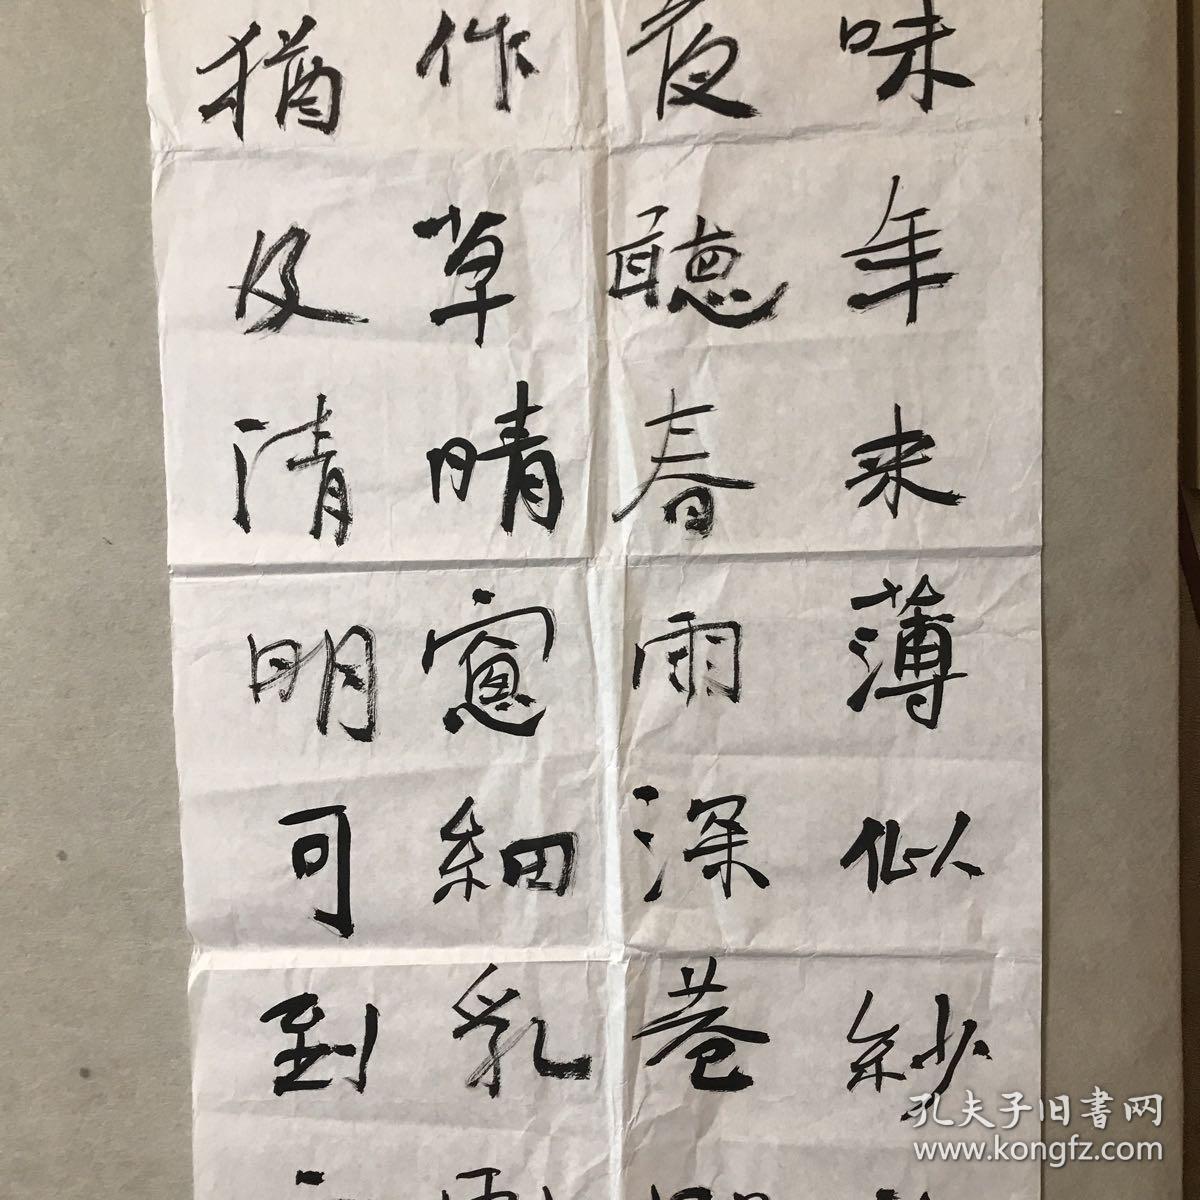 味年来薄似紗
夜聽春雨深巷
作草晴窗細乳
猶及清明可到
孔夫子旧書网
www.kongfz.com